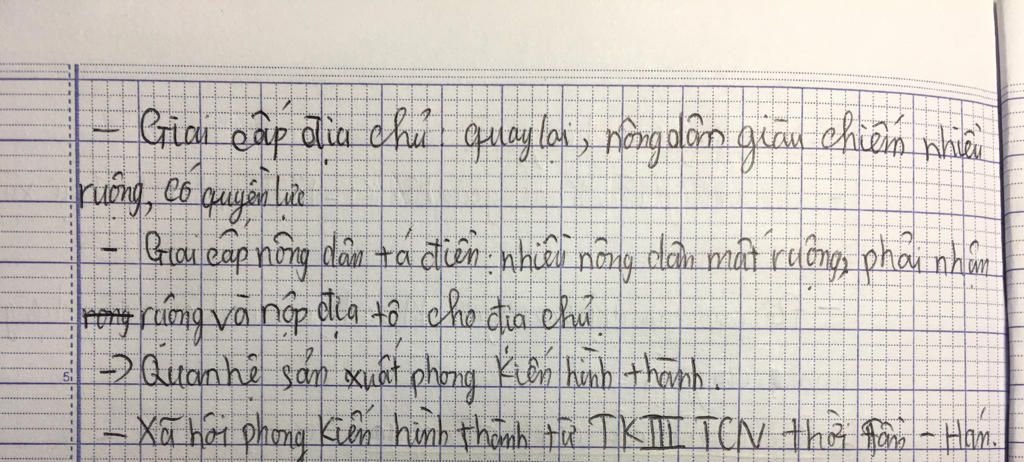 - Giai cấp địa chủ: quay lại, nông dân giàu chiếm nhiều
ruộng, có quyền lực
- Giai cấp nông dân tá điền: nhiều nông dân mất ruộng, phải nhận
ruộng và nộp địa tô cho địa chủ.
-> Quan hệ sản xuất phong kiến hình thành.
- Xã hội phong kiến hình thành từ TK III TCN thời Tần - Hán.